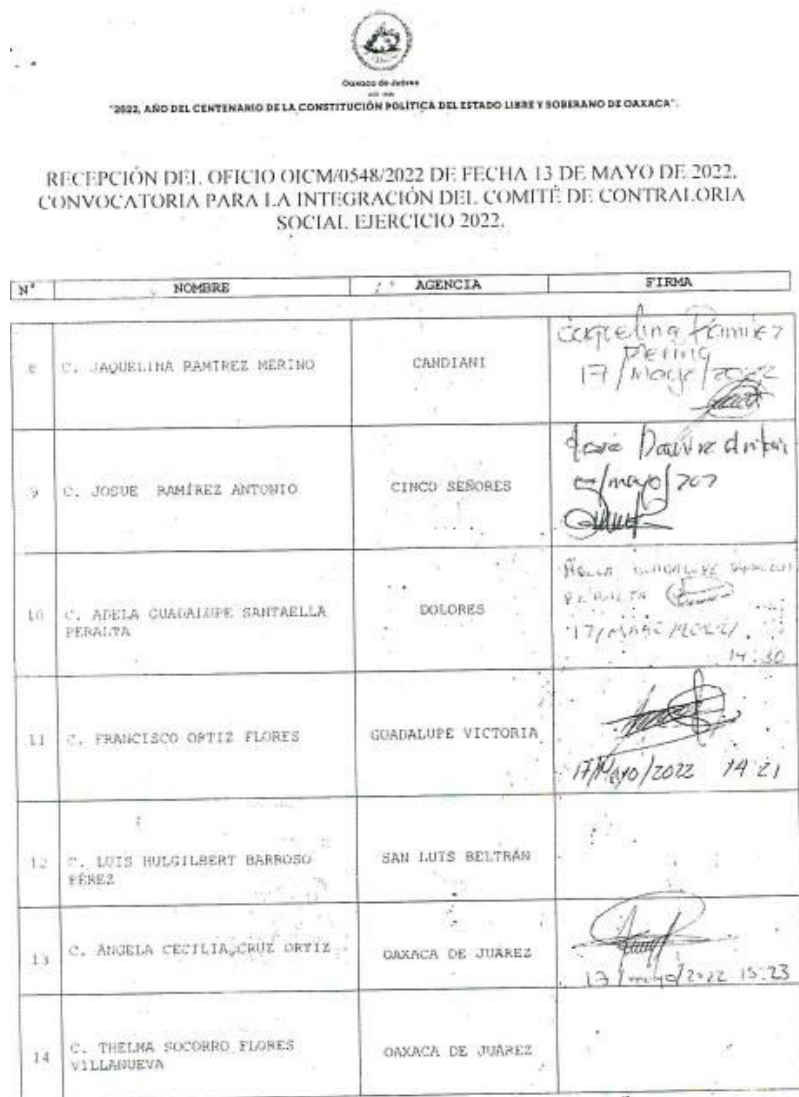 Oaxaca de Juárez
"2022, AÑO DEL CENTENARIO DE LA CONSTITUCIÓN POLÍTICA DEL ESTADO LIBRE Y SOBERANO DE OAXACA".
RECEPCIÓN DEL OFICIO OICM/0548/2022 DE FECHA 13 DE MAYO DE 2022.
CONVOCATORIA PARA LA INTEGRACIÓN DEL COMITÉ DE CONTRALORIA
SOCIAL EJERCICIO 2022.
N° NOMBRE AGENCIA FIRMA
8 C. JAQUELINA RAMIREZ MERINO CANDIANI
Jaquelina Ramirez
Merino
17/Mayo/2022
9 C. JOSUE RAMÍREZ ANTONIO CINCO SEÑORES
/mayo/202
10 C. ADELA GUADALUPE SANTAELLA
PERALTA
DOLORES
GUADALUPE
PERALTA
14:30
11 C. FRANCISCO ORTIZ FLORES GUADALUPE VICTORIA
17/Mayo/2022 14 21
12 C. LUIS HULGILBERT BARROSO
PÉREZ
SAN LUIS BELTRÁN
13 C. ANGELA CECILIA CRUZ ORTIZ OAXACA DE JUAREZ
17/mayo/2022 15:23
14 C. THELMA SOCORRO FLORES
VILLANUEVA
OAXACA DE JUÁREZ